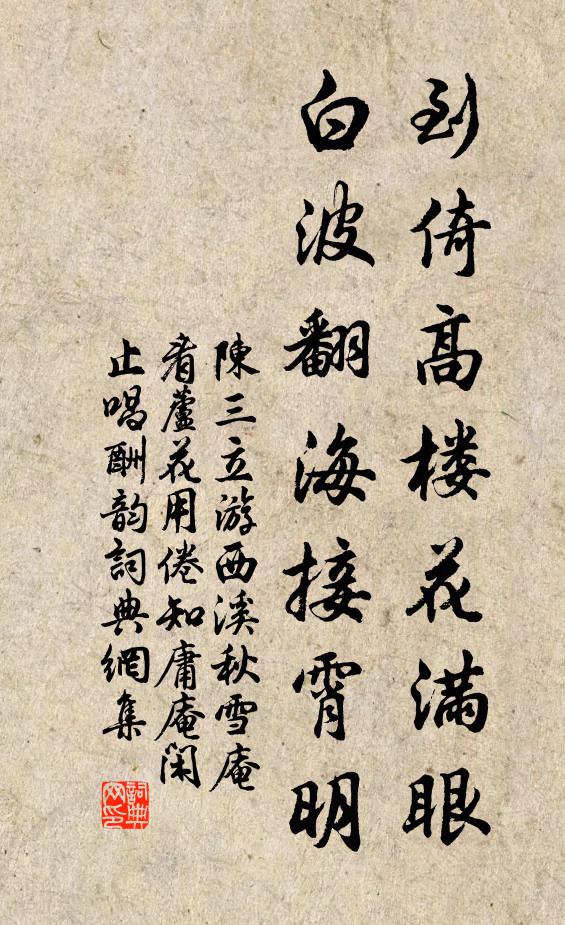 到倚高楼花满眼
白波翻海接霄明
陳三立游西溪秋雪庵
看蘆花用倦知庸庵闲
止唱酬韵詞典網集
詞典网印